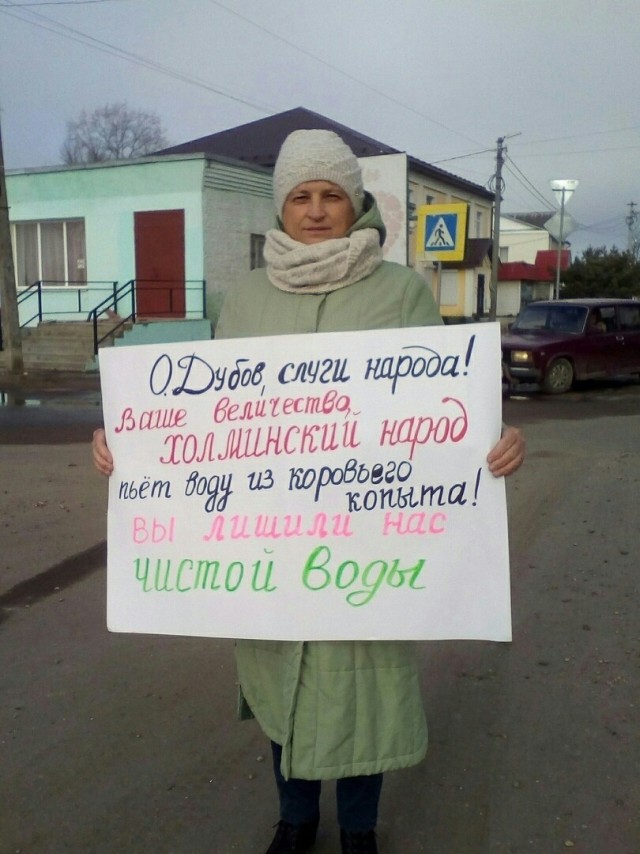 О. Дубов, слуги народа!
Ваше величество,
холминский народ
пьёт воду из коровьего
копыта!
вы лишили нас
чистой воды